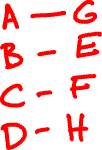 A - G
B - E
C - F
D - H